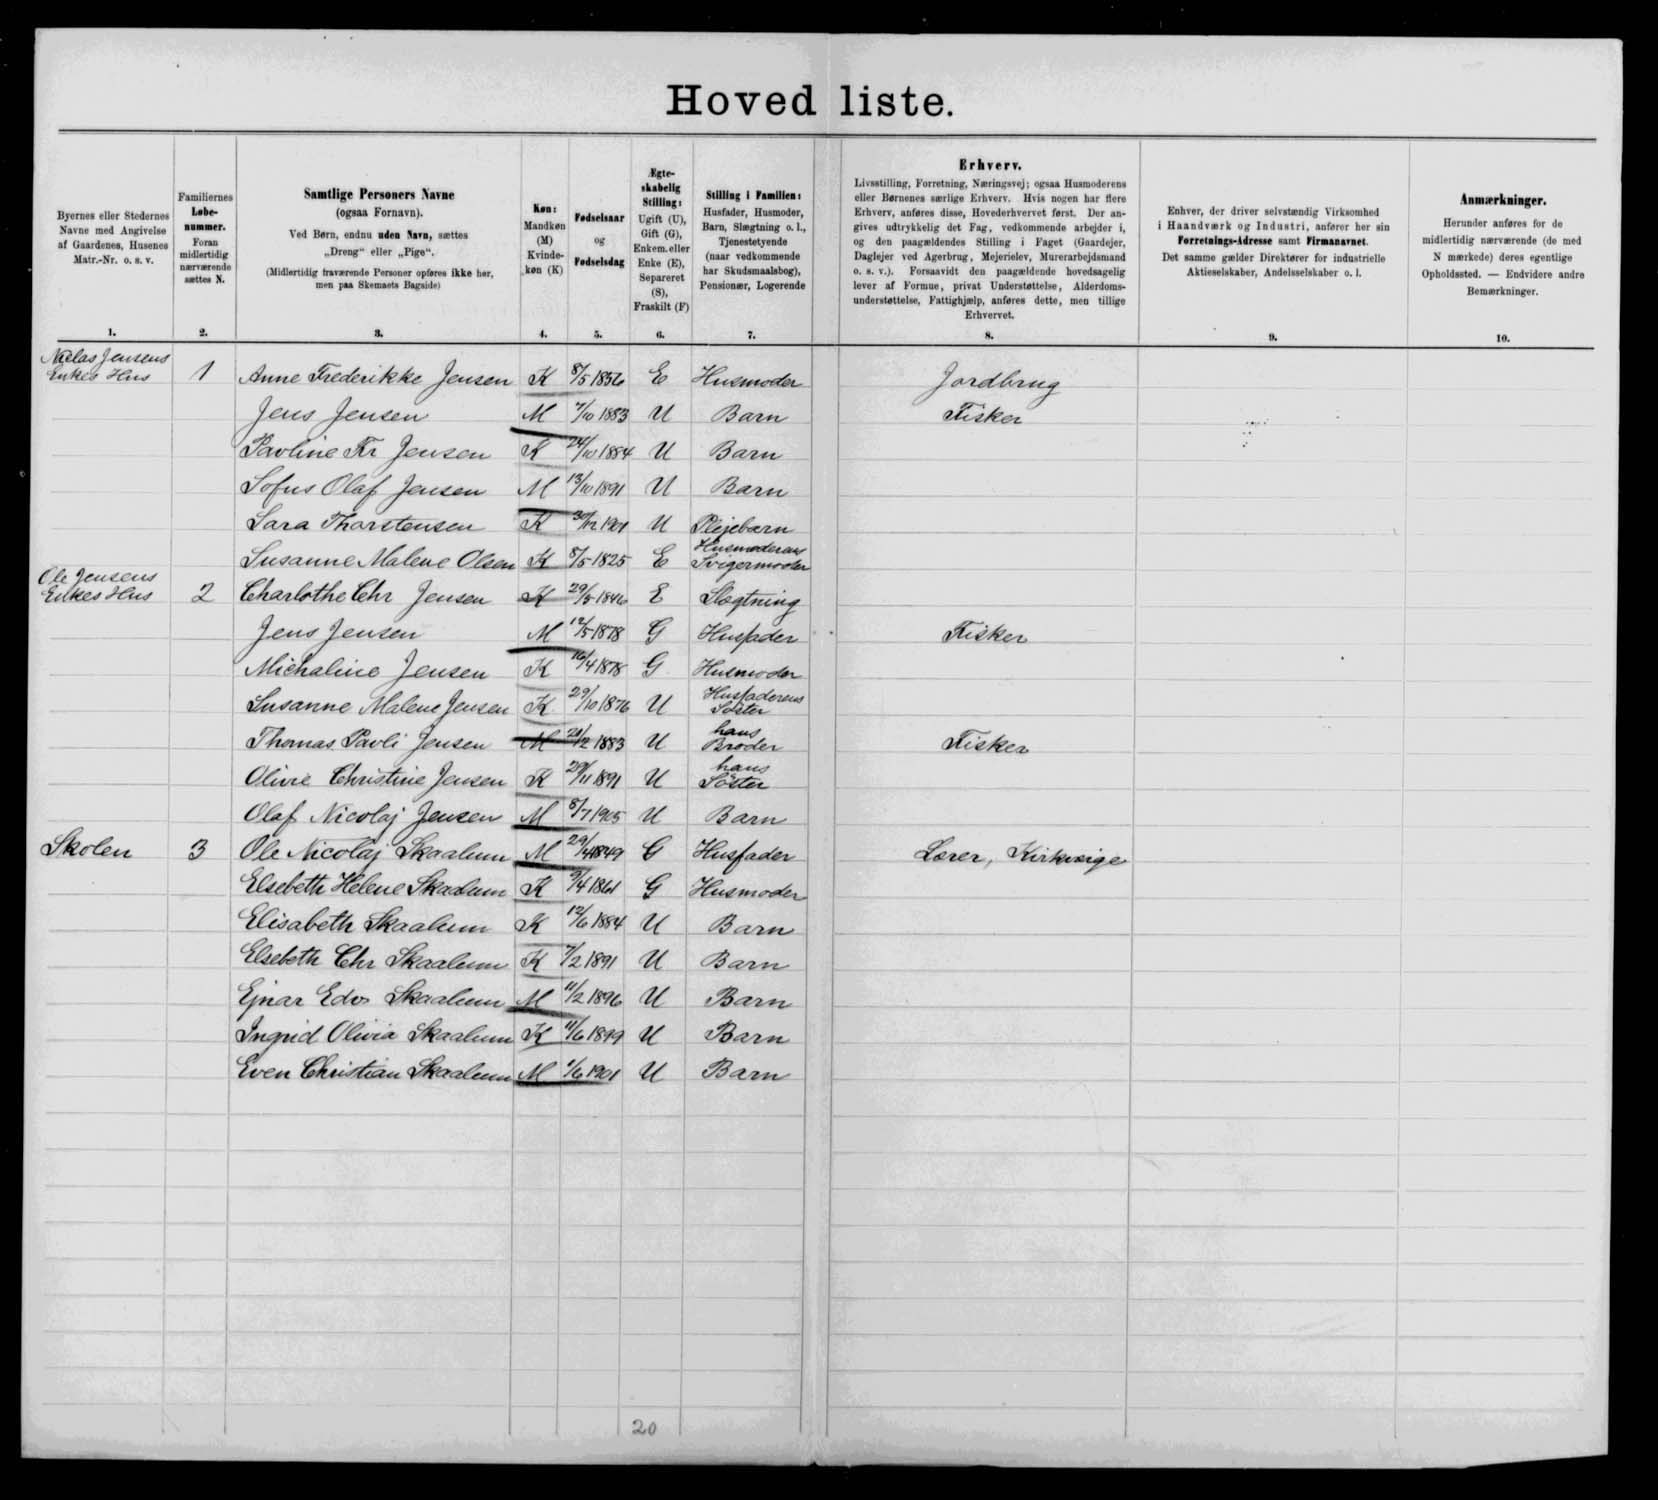 Hovedliste.
Byernes eller Stedernes
Navne med Angivelse
af Gaardenes, Husenes
Matr.-Nr. o. s. v.
1.
Familiernes
Løbe-
nummer.
Foran
midlertidig
nærværende
sættes N.
2.
Samtlige Personers Navne
(ogsaa Fornavn).
Ved Børn, endnu uden Navn, sættes
„Dreng“ eller „Pige“.
(Midlertidig fraværende Personer opføres ikke her,
men paa Skemaets Bagside)
3.
Køn:
Mandkøn
(M)
Kvinde-
køn (K)
4.
Fødselsaar
og
Fødselsdag
5.
Ægte-
skabelig
Stilling:
Ugift (U),
Gift (G),
Enkem. eller
Enke (E),
Separeret
(S),
Fraskilt (F)
6.
Stilling i Familien:
Husfader, Husmoder,
Barn, Slægtning o. l.,
Tjenestetyende
(naar vedkommende
har Skudsmaalsbog),
Pensionær, Logerende
7.
Erhverv.
Livsstilling, Forretning, Næringsvej; ogsaa Husmoderens
eller Børnenes særlige Erhverv. Hvis nogen har flere
Erhverv, anføres disse, Hovederhvervet først. Der an-
gives udtrykkelig det Fag, vedkommende arbejder i,
og den paagældendes Stilling i Faget (Gaardejer,
Daglejer ved Agerbrug, Mejerielev, Murerarbejdsmand
o. s. v.). Forsaavidt den paagældende hovedsagelig
lever af Formue, privat Understøttelse, Alderdoms-
understøttelse, Fattighjælp, anføres dette, men tillige
Erhvervet.
8.
Enhver, der driver selvstændig Virksomhed
i Haandværk og Industri, anfører her sin
Forretnings-Adresse samt Firmanavnet.
Det samme gælder Direktører for industrielle
Aktieselskaber, Andelsselskaber o. l.
9.
Anmærkninger.
Herunder anføres for de
midlertidig nærværende (de med
N mærkede) deres egentlige
Opholdssted. — Endvidere andre
Bemærkninger.
10.
Niclas Jensens
Enkes Hus 1 Anne Frederikke Jensen K 8/5 1856 E Husmoder Jordbrug
Jens Jensen M 7/10 1883 U Barn Fisker
Pavline Fr Jensen K 24/10 1884 U Barn
Sofus Olaf Jensen M 13/10 1891 U Barn
Sara Thorstensen K 30/12 1901 U Plejebarn
Susanne Malene Olsen K 8/5 1825 E Husmoderens Svigermoder
Ole Jensens
Enkes Hus 2 Charlothe Chr Jensen K 29/5 1846 E Slægtning
Jens Jensen M 12/5 1878 G Husfader Fisker
Michaline Jensen K 16/4 1878 G Husmoder
Susanne Malene Jensen K 29/10 1876 U Husfaderens Söster
Thomas Pavli Jensen M 21/2 1883 U hans Broder Fisker
Olivie Christine Jensen K 29/11 1891 U hans Söster
Olaf Nicolaj Jensen M 8/7 1905 U Barn
Skolen 3 Ole Nicolaj Skaalum M 29/4 1849 G Husfader Lærer, Kirkesige
Elsebeth Helene Skaalum K 3/4 1861 G Husmoder
Elisabeth Skaalum K 12/6 1884 U Barn
Elsebeth Chr Skaalum K 7/2 1891 U Barn
Ejnar Edv Skaalum M 11/2 1896 U Barn
Ingrid Olivia Skaalum K 11/6 1899 U Barn
Even Christian Skaalum M 1/6 1901 U Barn
20